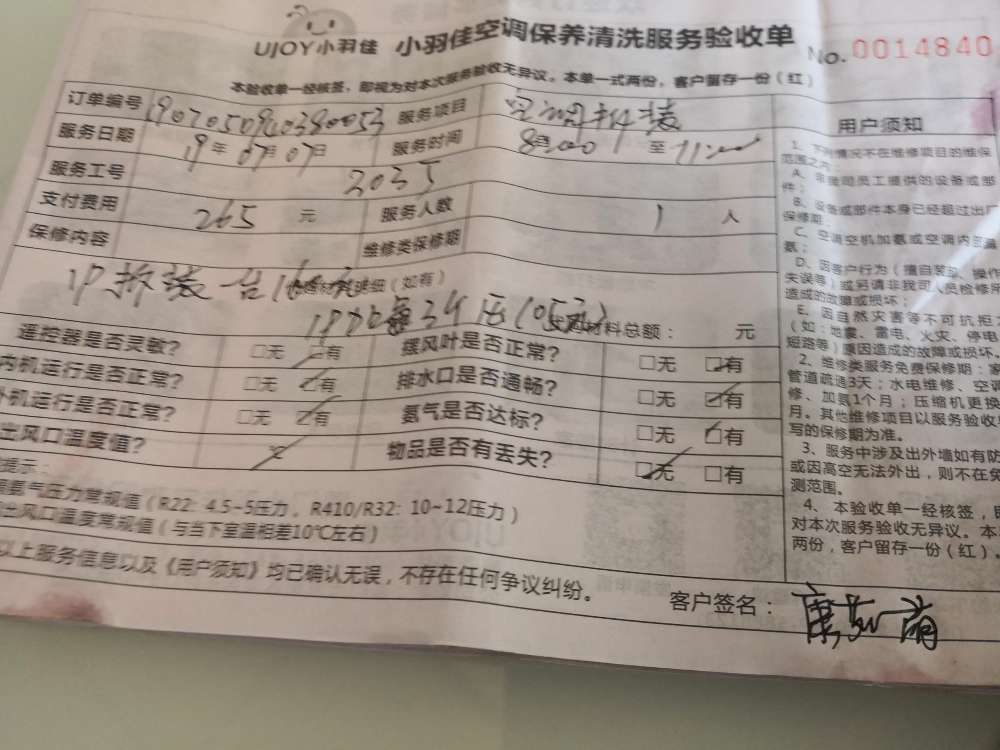 UJOY小羽佳 小羽佳空调保养清洗服务验收单 No.0014840
本验收单一经核签，即视为对本次服务验收无异议。本单一式两份，客户留存一份（红）
订单编号 服务项目 空调拆装 用户须知
服务日期 19年07月07日 服务时间 至
服务工号 2035
支付费用 265 元 服务人数 1 人
保修内容 维修类保修期
1P拆装 台 明细（如有）
材料总额： 元
遥控器是否灵敏？ □无 □有 摆风叶是否正常？ □无 □有
内机运行是否正常？ □无 □有 排水口是否通畅？ □无 □有
外机运行是否正常？ □无 □有 氨气是否达标？ □无 □有
出风口温度值？ ℃ 物品是否有丢失？ □无 □有
提示：
氨气压力常规值（R22：4.5~5压力，R410/R32：10~12压力）
出风口温度常规值（与当下室温相差10℃左右）
以上服务信息以及《用户须知》均已确认无误，不存在任何争议纠纷。
客户签名：
1、下列情况不在维修项目的维保
范围之内
A、非我司员工提供的设备或部
件；
B、设备或部件本身已经超过出厂
保修期
C、空调空机加氨或空调内部漏
氨；
D、因客户行为（擅自装卸、操作
失误等）或另请非我司人员检修所
造成的故障或损坏；
E、因自然灾害等不可抗拒
（如：地震、雷电、火灾、停电
短路等）原因造成的故障或损坏。
2、维修类服务免费保修期：家
管道疏通3天；水电维修、空调
修、加氨1个月；压缩机更换
月。其他维修项目以服务验收
写的保修期为准。
3、服务中涉及出外墙如有防
或因高空无法外出，则不在免
测范围。
4、本验收单一经核签，即
对本次服务验收无异议。本
两份，客户留存一份（红）